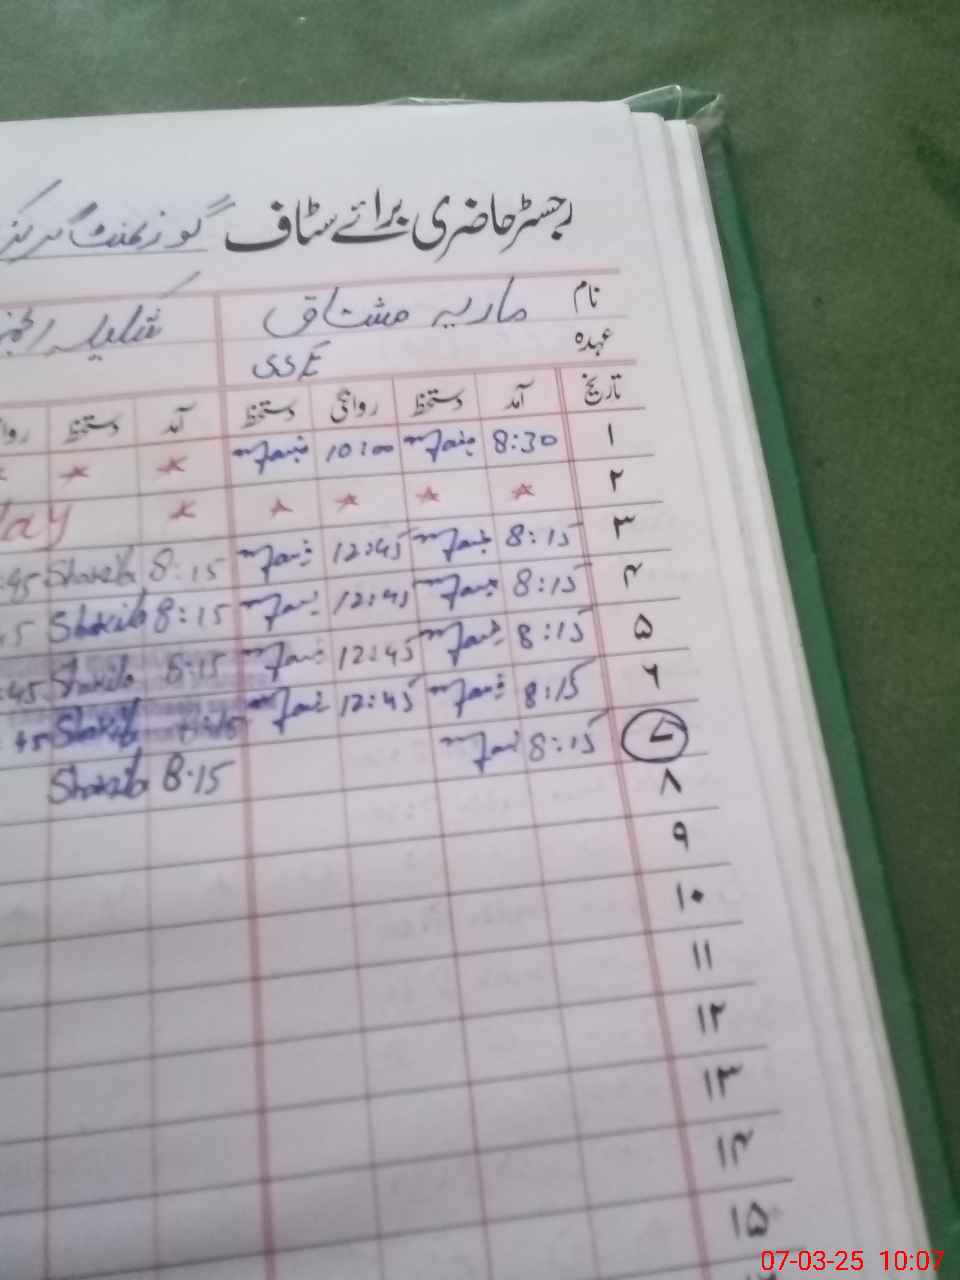 رجسٹر حاضری برائے سٹاف گورنمنٹ
نام ماریہ مشتاق شکیلہ
عہدہ SSE
تاریخ آمد دستخط روانگی دستخط آمد دستخط
۱ 8:30 10:00
۲
۳ 8:15 12:45 8:15 Shakila
۴ 8:15 12:45 8:15 Shakila
۵ 8:15 12:45 8:15 Shakila
۶ 8:15 12:45 Shakila
۷ 8:15 8:15 Shakila
۸
۹
۱۰
۱۱
۱۲
۱۳
۱۴
۱۵
07-03-25 10:07